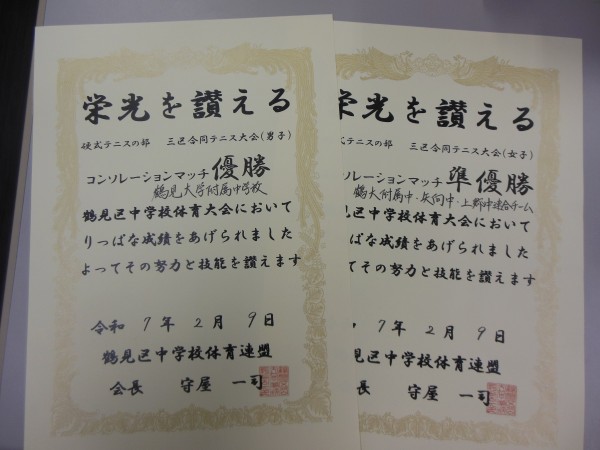 栄光を讃える
硬式テニスの部 三区合同テニス大会(男子)
コンソレーションマッチ 優勝
鶴見大学附属中学校
鶴見区中学校体育大会において
りっぱな成績をあげられました
よってその努力と技能を讃えます
令和 7年 2月 9日
鶴見区中学校体育連盟
会長 守屋 一司
栄光を讃える
式テニスの部 三区合同テニス大会(女子)
ソレーションマッチ 準優勝
鶴大附属中・矢向中・上郷中連合チーム
見区中学校体育大会において
ぱな成績をあげられました
てその努力と技能を讃えます
7年 2月 9日
見区中学校体育連盟
長 守屋 一司